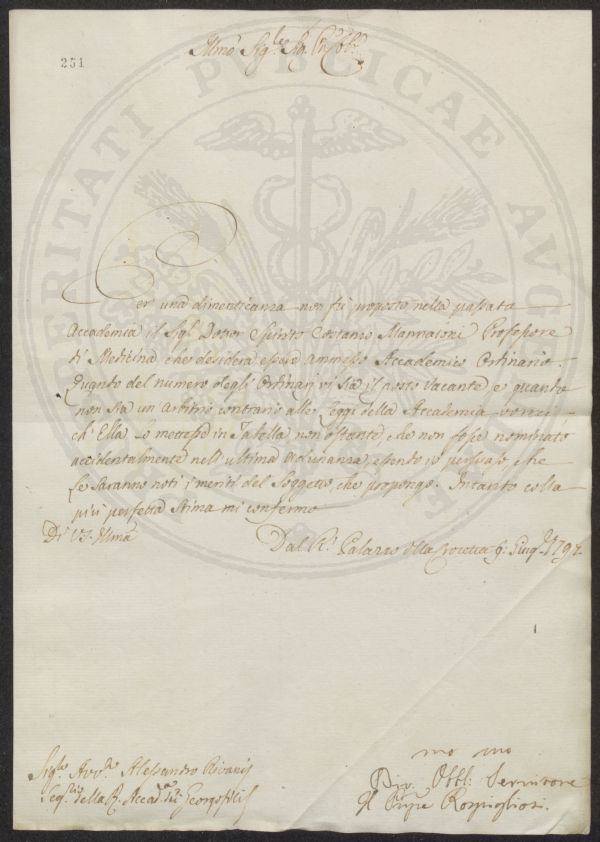 251
Illmo Sigre Sig. Pn Colmo
PROSPERITATI PUBLICAE AUGENDAE
Per una dimenticanza non fù proposto nella passata
Accademia il Sigr Dottor Spirito Costanzo Mannajoni Professore
di Medicina che desidera essere ammesso Accademico Ordinario.
Quanto del numero degli Ordinarj vi sia il posto vacante e quanto
non sia un arbitrio contrario alle Leggi della Accademia vorrei
ch'Ella lo mettesse in Tabella non ostante, che non fosse nominato
accidentalmente nell'ultima Adunanza, essendo io persuaso che
le saranno noti i meriti del Soggetto, che propongo. Intanto colla
più perfetta stima mi confermo
Di VS. Illma
Dal R. Palazzo della Crocetta 9: Giug. 1797.
Sigre Avvo Alessandro Rivani
Segrio della R. Accad. dei Georgofili
mo mo
Div. Obbl. Servitore
Il Rospigliosi.